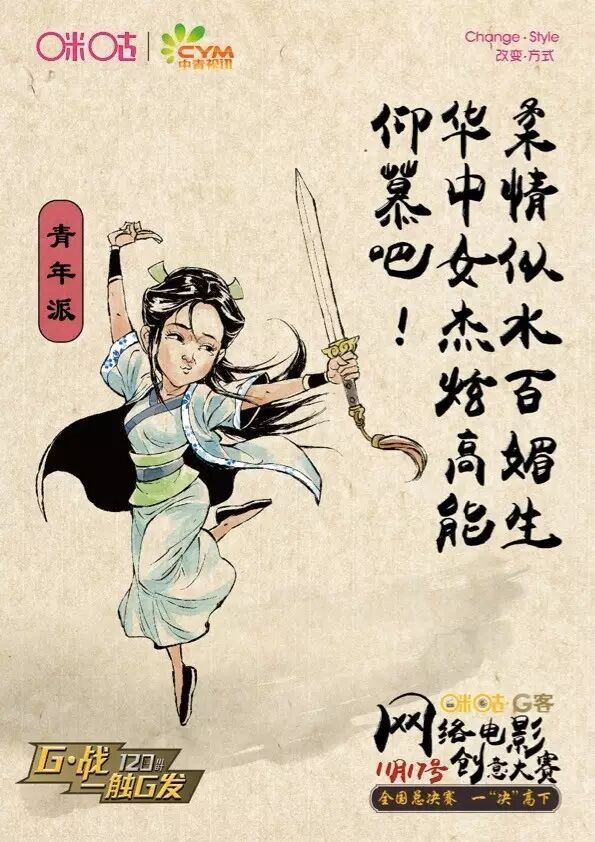 咪咕
CYM
中青视讯
Change·Style
改变·方式
柔情似水百媚生
华中女杰炫高能
仰慕吧！
青年派
G·战
120小时
一触G发
咪咕·G客
网络电影
11月17号
创意大赛
全国总决赛 一“决”高下